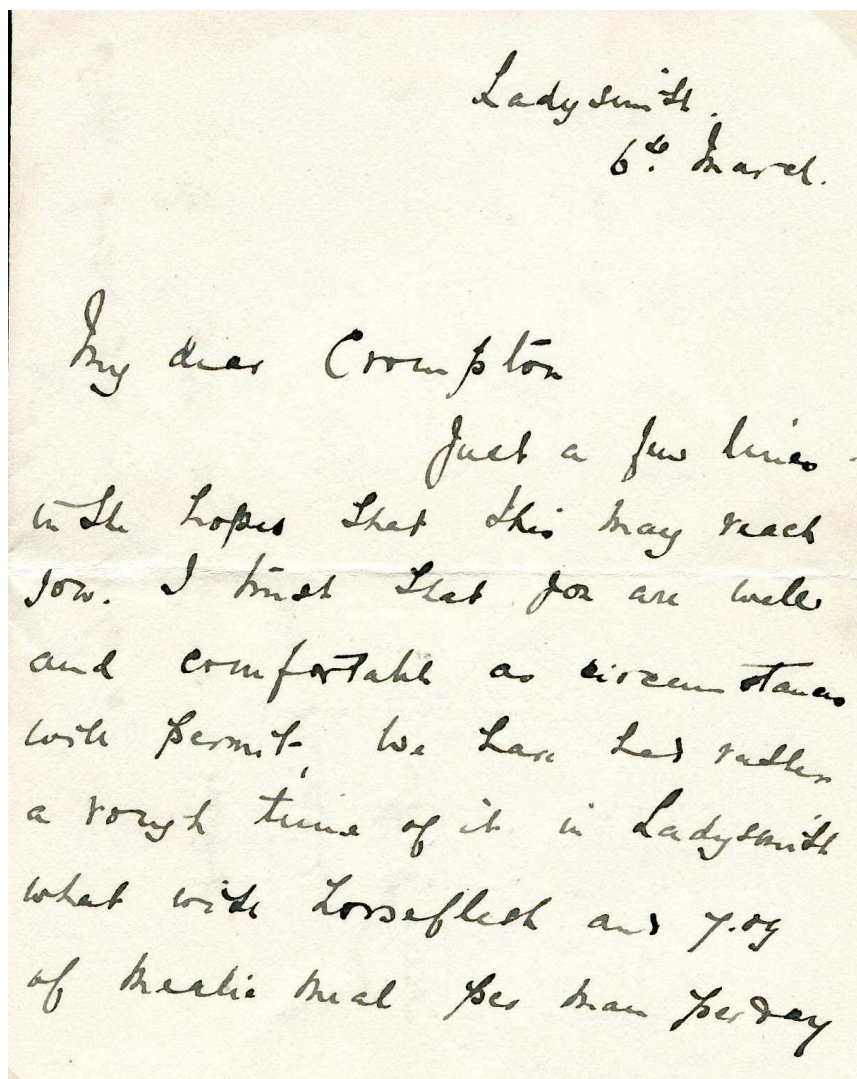 Ladysmith.
6th March.
My dear Crompton
Just a few lines -
in the hopes that this may reach
you. I trust that you are well
and comfortable as circumstances
will permit, We have had rather
a rough time of it in Ladysmith
what with horseflesh and 7.oz
of mealie meal per man per day